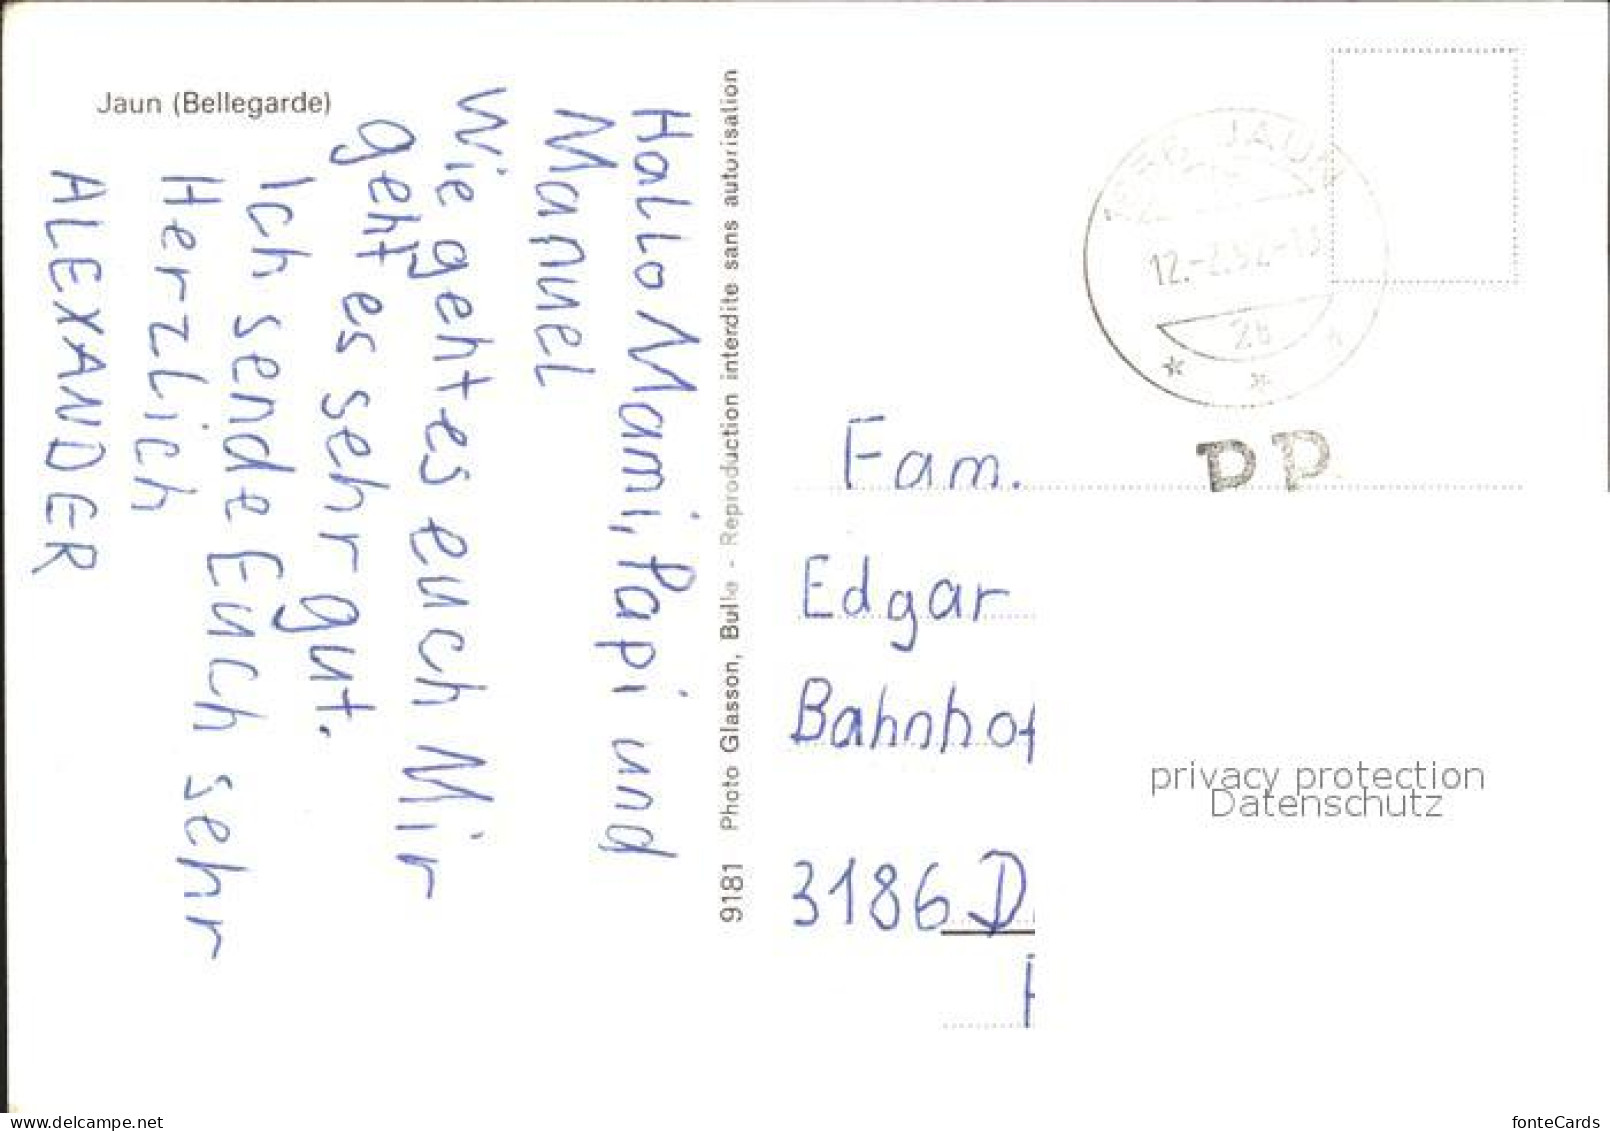 Jaun (Bellegarde)
Hallo Mami, Papi und
Manuel
Wie geht es euch Mir
geht es sehr gut.
Ich sende Euch sehr
Herzlich
ALEXANDER
9181 Photo Glasson, Bulle - Reproduction interdite sans autorisation
JAUN
12.-2.92-13
2b
PP
Fam.
Edgar
Bahnhof
3186 D
privacy protection
Datenschutz
my-post-card.delcampe.net
fonteCards